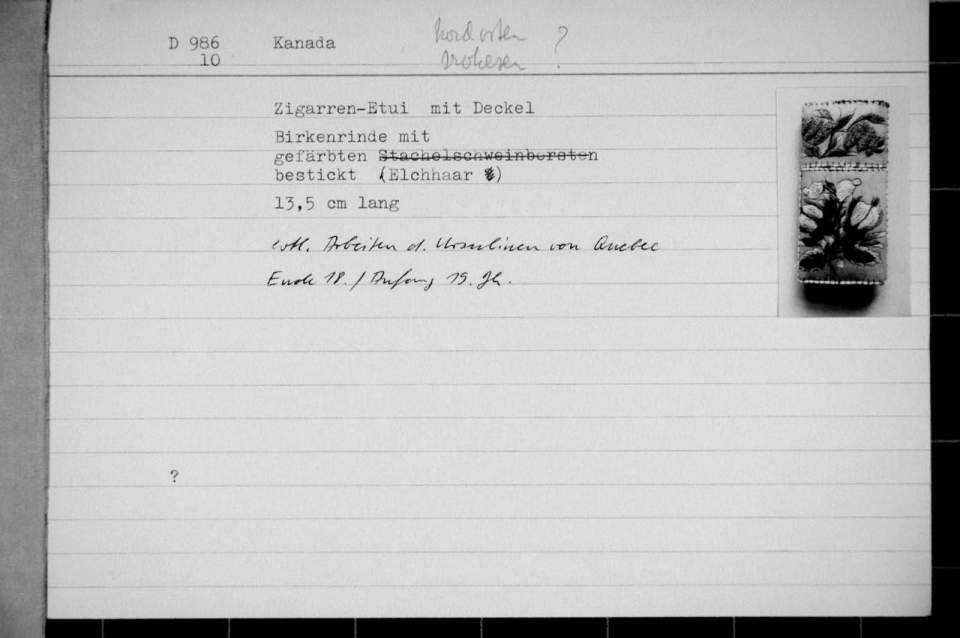 D 986 Kanada Nordosten ?
10 Irokesen
Zigarren-Etui mit Deckel
Birkenrinde mit
gefärbten Stachelschweinborsten
bestickt (Elchhaar)
13,5 cm lang
evtl. Arbeiten d. Ursulinen von Quebec
Ende 18. / Anfang 19. Jh.
?